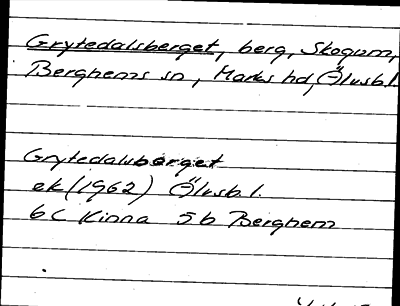 Grytedalsberget, berg, Skogum,
Berghems sn, Marks hd, Älvsb.l.
Grytedalsberget
ek (1962) Älvsb.l.
6C Kinna 5b Berghem